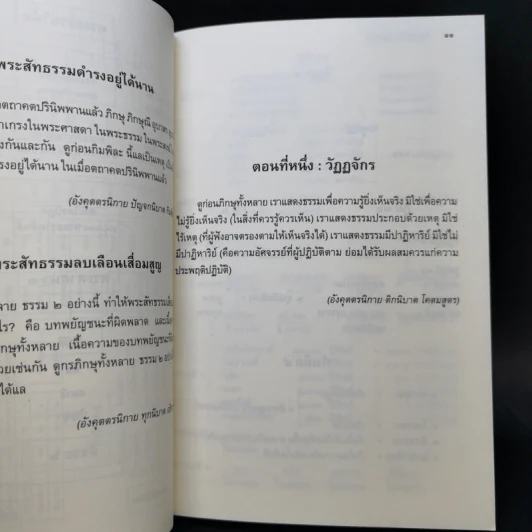 พระสัทธรรมดำรงอยู่ได้นาน
ตถาคตปรินิพพานแล้ว ภิกษุ ภิกษุณี
ยำเกรงในพระศาสดา ในพระธรรม
กันและกัน ดูก่อนกิมพิละ นี้แลเป็นเหตุ
อยู่ได้นาน ในเมื่อตถาคตปรินิพพานแล้ว
(อังคุตตรนิกาย ปัญจกนิบาต
พระสัทธรรมลบเลือนเสื่อมสูญ
ธรรม ๒ อย่างนี้ ทำให้พระสัทธรรม
คือ บทพยัญชนะที่ผิดพลาด
ภิกษุทั้งหลาย เนื้อความของบทพยัญชนะ
เช่นกัน ดูกรภิกษุทั้งหลาย ธรรม ๒
ได้แล
(อังคุตตรนิกาย ทุกนิบาต
๑๑
ตอนที่หนึ่ง : วัฏฏจักร
ดูก่อนภิกษุทั้งหลาย เราแสดงธรรมเพื่อความรู้ยิ่งเห็นจริง มิใช่เพื่อความ
ไม่รู้ยิ่งเห็นจริง (ในสิ่งที่ควรรู้ควรเห็น) เราแสดงธรรมประกอบด้วยเหตุ มิใช่
ไร้เหตุ (ที่ผู้ฟังอาจตรองตามให้เห็นจริงได้) เราแสดงธรรมมีปาฏิหาริย์ มิใช่ไม่
มีปาฏิหาริย์ (คือความอัศจรรย์ที่ผู้ปฏิบัติตาม ย่อมได้รับผลสมควรแก่ความ
ประพฤติปฏิบัติ)
(อังคุตตรนิกาย ติกนิบาต โคตมสูตร)